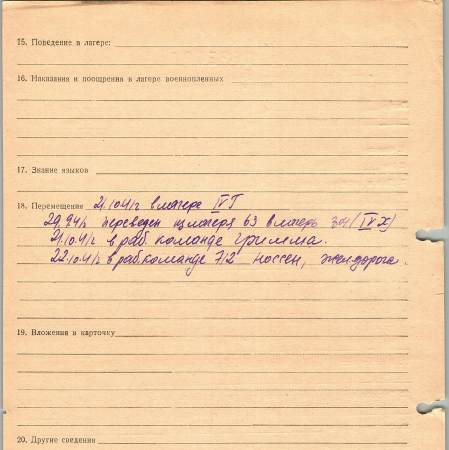 15. Поведение в лагере:
16. Наказания и поощрения в лагере военнопленных
17. Знание языков
18. Перемещения 21.10.41г в лагере IV Г
29.9.41г переведен из лагеря 63 в лагерь 304 (IV Х)
21.10.41г в раб. команде Гримма.
22.10.41г в рабкоманде 712 Носсен, жел дорога.
19. Вложения в карточку
20. Другие сведения